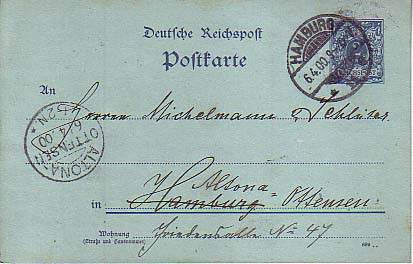 Deutsche Reichspost
Postkarte
HAMBURG
6.4.00.
An
Herren Michelmann & Schlüter
ALTONA
OTTENSEN
6.4.00
Altona-
in Hamburg Ottensen
Wohnung
(Straße und Hausnummer)
Friedensallee No 47